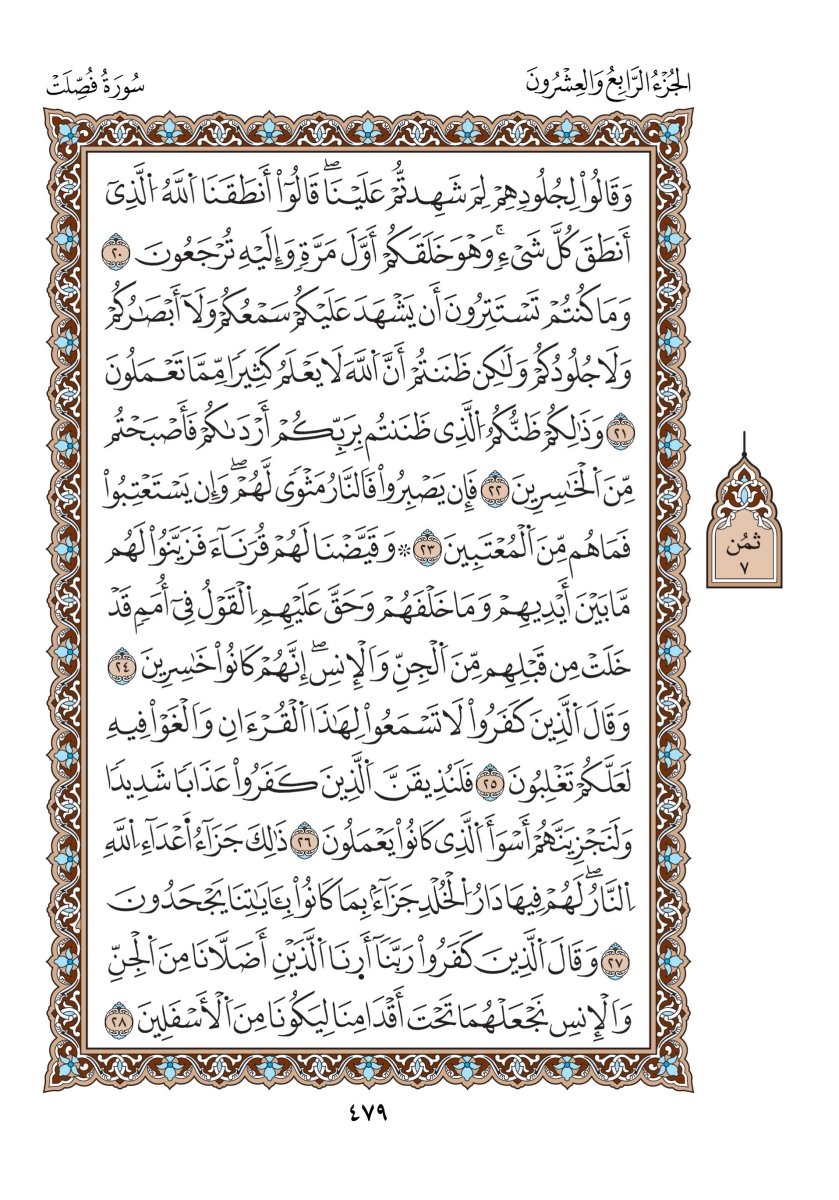 الجُزْءُ الرَّابِعُ وَالعِشْرُونَ
سُورَةُ فُصِّلَتْ
وَقَالُواْ لِجُلُودِهِمْ لِمَ شَهِدتُّمْ عَلَيْنَاۖ قَالُوٓاْ أَنطَقَنَا اَ۬للَّهُ اُ۬لَّذِےٓ
أَنطَقَ كُلَّ شَےْءٖۚ وَهْوَ خَلَقَكُمْ أَوَّلَ مَرَّةٖ وَإِلَيْهِ تُرْجَعُونَ ٢٠
وَمَا كُنتُمْ تَسْتَتِرُونَ أَن يَشْهَدَ عَلَيْكُمْ سَمْعُكُمْ وَلَآ أَبْصَٰرُكُمْ
وَلَا جُلُودُكُمْ وَلَٰكِن ظَنَنتُمْ أَنَّ اَ۬للَّهَ لَا يَعْلَمُ كَثِيرٗا مِّمَّا تَعْمَلُونَ
٢١ وَذَٰلِكُمْ ظَنُّكُمُ اُ۬لَّذِے ظَنَنتُم بِرَبِّكُمْ أَرْدَىٰكُمْ فَأَصْبَحْتُم
مِّنَ اَ۬لْخَٰسِرِينَ ٢٢ فَإِن يَصْبِرُواْ فَالنَّارُ مَثْوٗى لَّهُمْۖ وَإِن يَسْتَعْتِبُواْ
فَمَا هُم مِّنَ اَ۬لْمُعْتَبِينَ ٢٣ ۞ وَقَيَّضْنَا لَهُمْ قُرَنَآءَ فَزَيَّنُواْ لَهُم
مَّا بَيْنَ أَيْدِيهِمْ وَمَا خَلْفَهُمْ وَحَقَّ عَلَيْهِمِ اِ۬لْقَوْلُ فِےٓ أُمَمٖ قَدْ
خَلَتْ مِن قَبْلِهِم مِّنَ اَ۬لْجِنِّ وَالْإِنسِۖ إِنَّهُمْ كَانُواْ خَٰسِرِينَ ٢٤
وَقَالَ اَ۬لَّذِينَ كَفَرُواْ لَا تَسْمَعُواْ لِهَٰذَا اَ۬لْقُرْءَانِ وَالْغَوْاْ فِيهِ
لَعَلَّكُمْ تَغْلِبُونَ ٢٥ فَلَنُذِيقَنَّ اَ۬لَّذِينَ كَفَرُواْ عَذَابٗا شَدِيدٗا
وَلَنَجْزِيَنَّهُمْ أَسْوَأَ اَ۬لَّذِے كَانُواْ يَعْمَلُونَ ٢٦ ذَٰلِكَ جَزَآءُ اَ۬عْدَآءِ اِ۬للَّهِ
اِ۬لنَّارُۖ لَهُمْ فِيهَا دَارُ اُ۬لْخُلْدِ جَزَآءَۢ بِمَا كَانُواْ بِـَٔايَٰتِنَا يَجْحَدُونَ
٢٧ وَقَالَ اَ۬لَّذِينَ كَفَرُواْ رَبَّنَآ أَرْنَا اَ۬لَّذَيْنِ أَضَلَّٰنَا مِنَ اَ۬لْجِنِّ
وَالْإِنسِ نَجْعَلْهُمَا تَحْتَ أَقْدَامِنَا لِيَكُونَا مِنَ اَ۬لْأَسْفَلِينَ ٢٨
ثُمُن
٧
٤٧٩